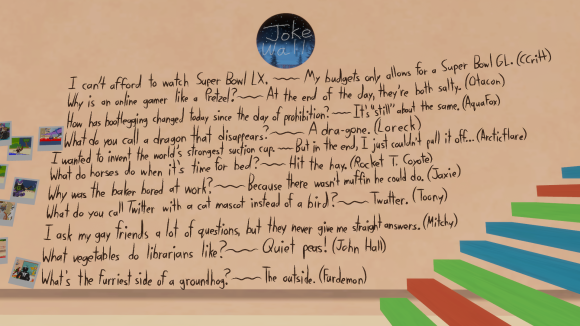 Joke
Wall
I can't afford to watch Super Bowl LX. ~~~ My budgets only allows for a Super Bowl GL. (CCritt)
Why is an online gamer like a Pretzel? ~~~ At the end of the day, they're both salty. (Otacon)
How has bootlegging changed today since the day of prohibition? ~~~ It's "still" about the same. (AquaFox)
What do you call a dragon that disappears? ~~~ A dra-gone. (Loreck)
I wanted to invent the world's strongest suction cup. ~~~ But in the end, I just couldn't pull it off... (ArcticFlare)
What do horses do when it's time for bed? ~~~ Hit the hay. (Rocket T. Coyote)
Why was the baker bored at work? ~~~ Because there wasn't muffin he could do. (Jaxie)
What do you call Twitter with a cat mascot instead of a bird? ~~~ Twatter. (Toony)
I ask my gay friends a lot of questions, but they never give me straight answers. (Mitchy)
What vegetables do librarians like? ~~~ Quiet peas! (John Hall)
What's the furriest side of a groundhog? ~~~ The outside. (Furdemon)